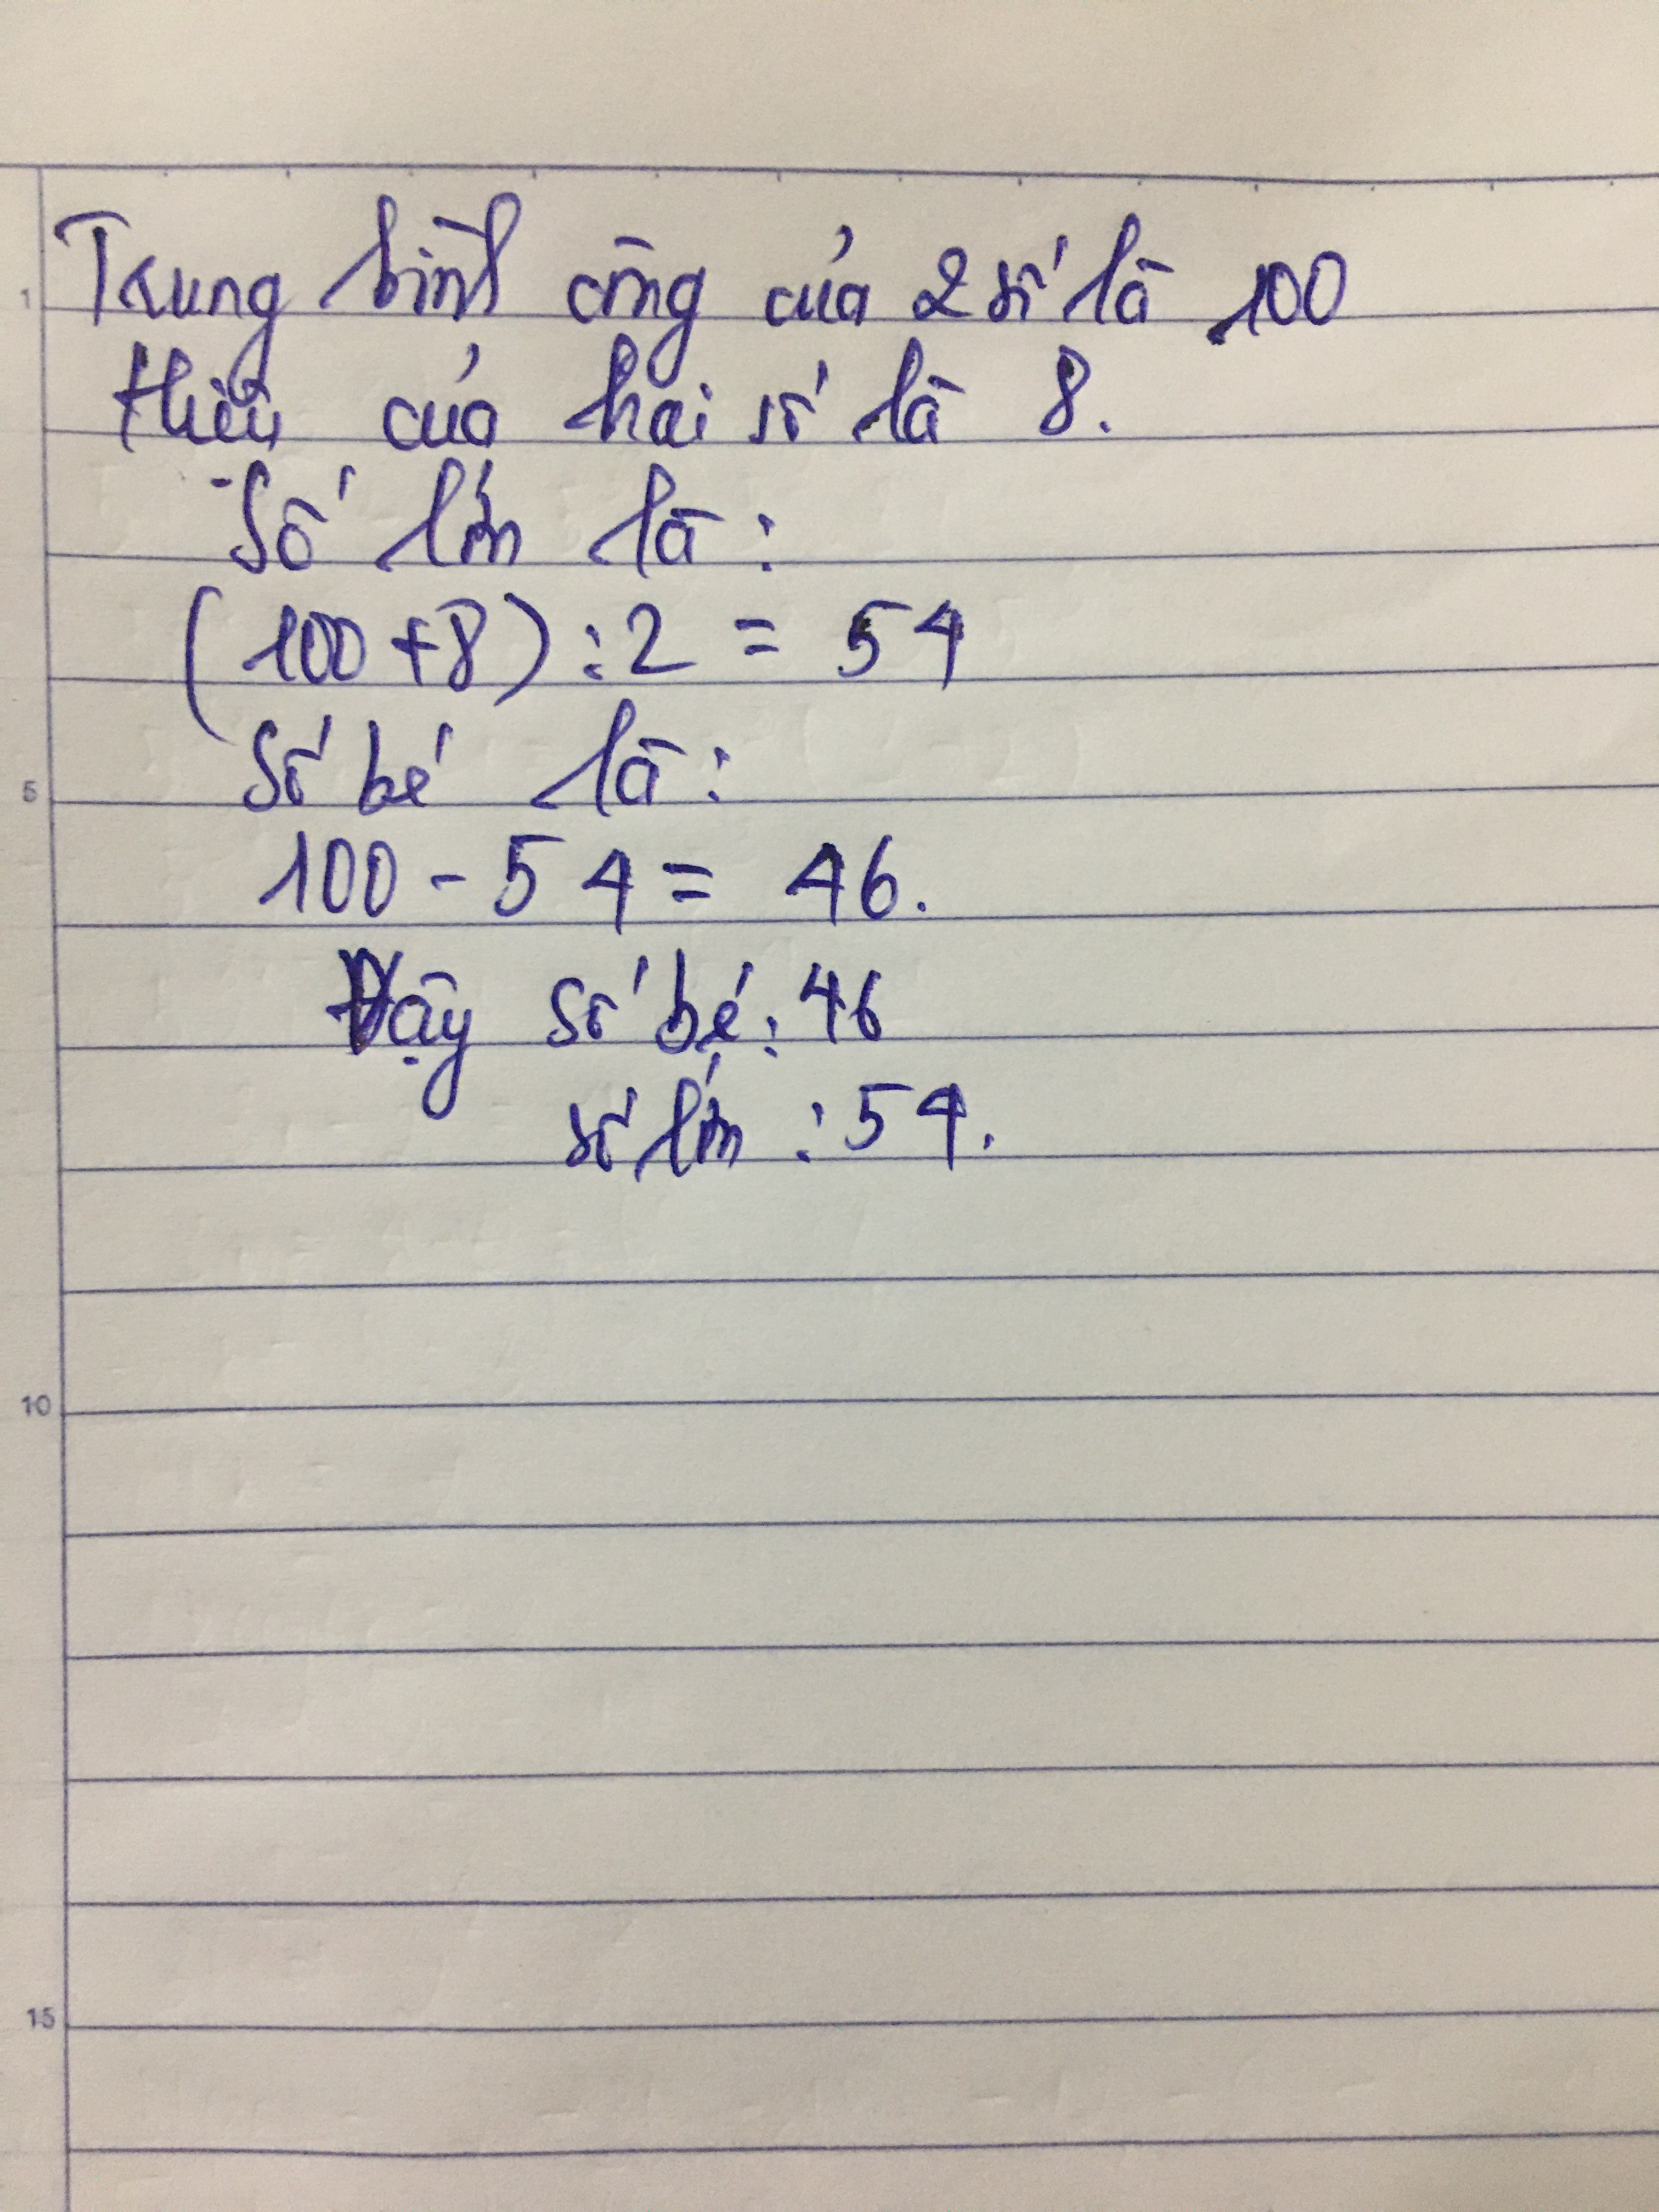 Trung bình cộng của 2 số là 100
Hiệu của hai số là 8.
Số lớn là:
(100+8):2 = 54
Số bé là:
100 - 54 = 46.
Vậy số bé: 46
số lớn: 54.
1
5
10
15